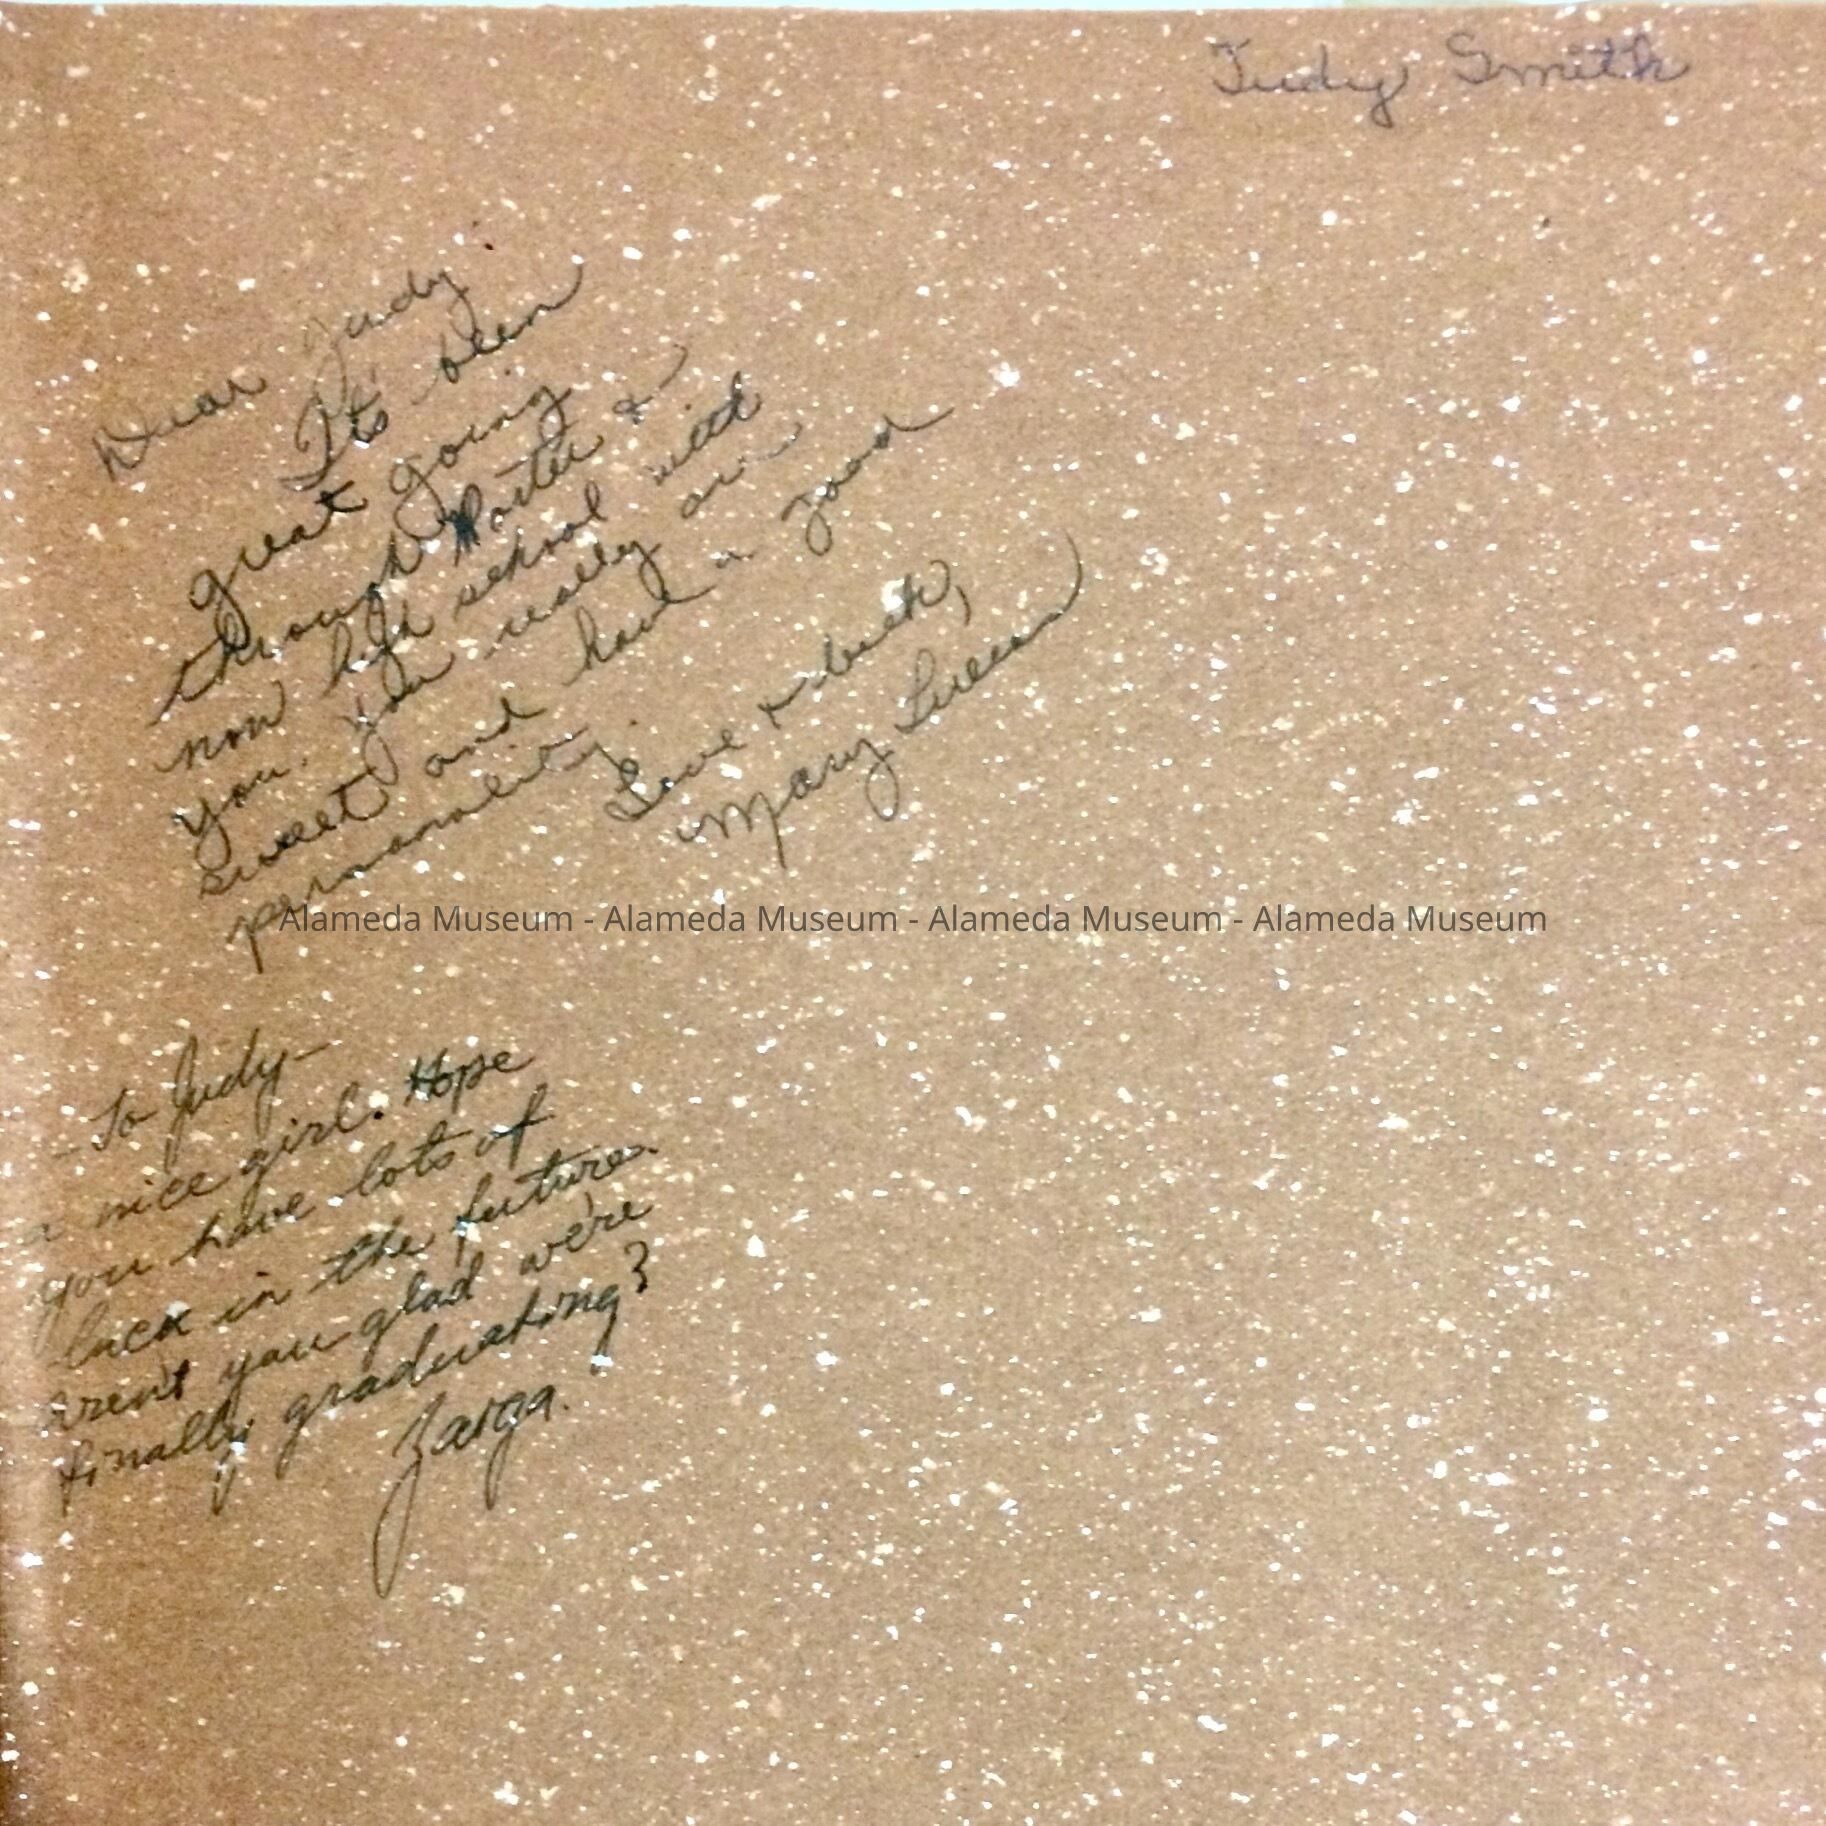 Judy Smith
Dear Judy
Its been
great going
through Porter &
now high school with
you. You really are
sweet and have a good
personality.
Love & luck,
Mary
Alameda Museum - Alameda Museum - Alameda Museum - Alameda Museum
- To Judy -
a nice girl. Hope
you have lots of
luck in the future.
aren't you glad we're
finally graduating?
Zarga.